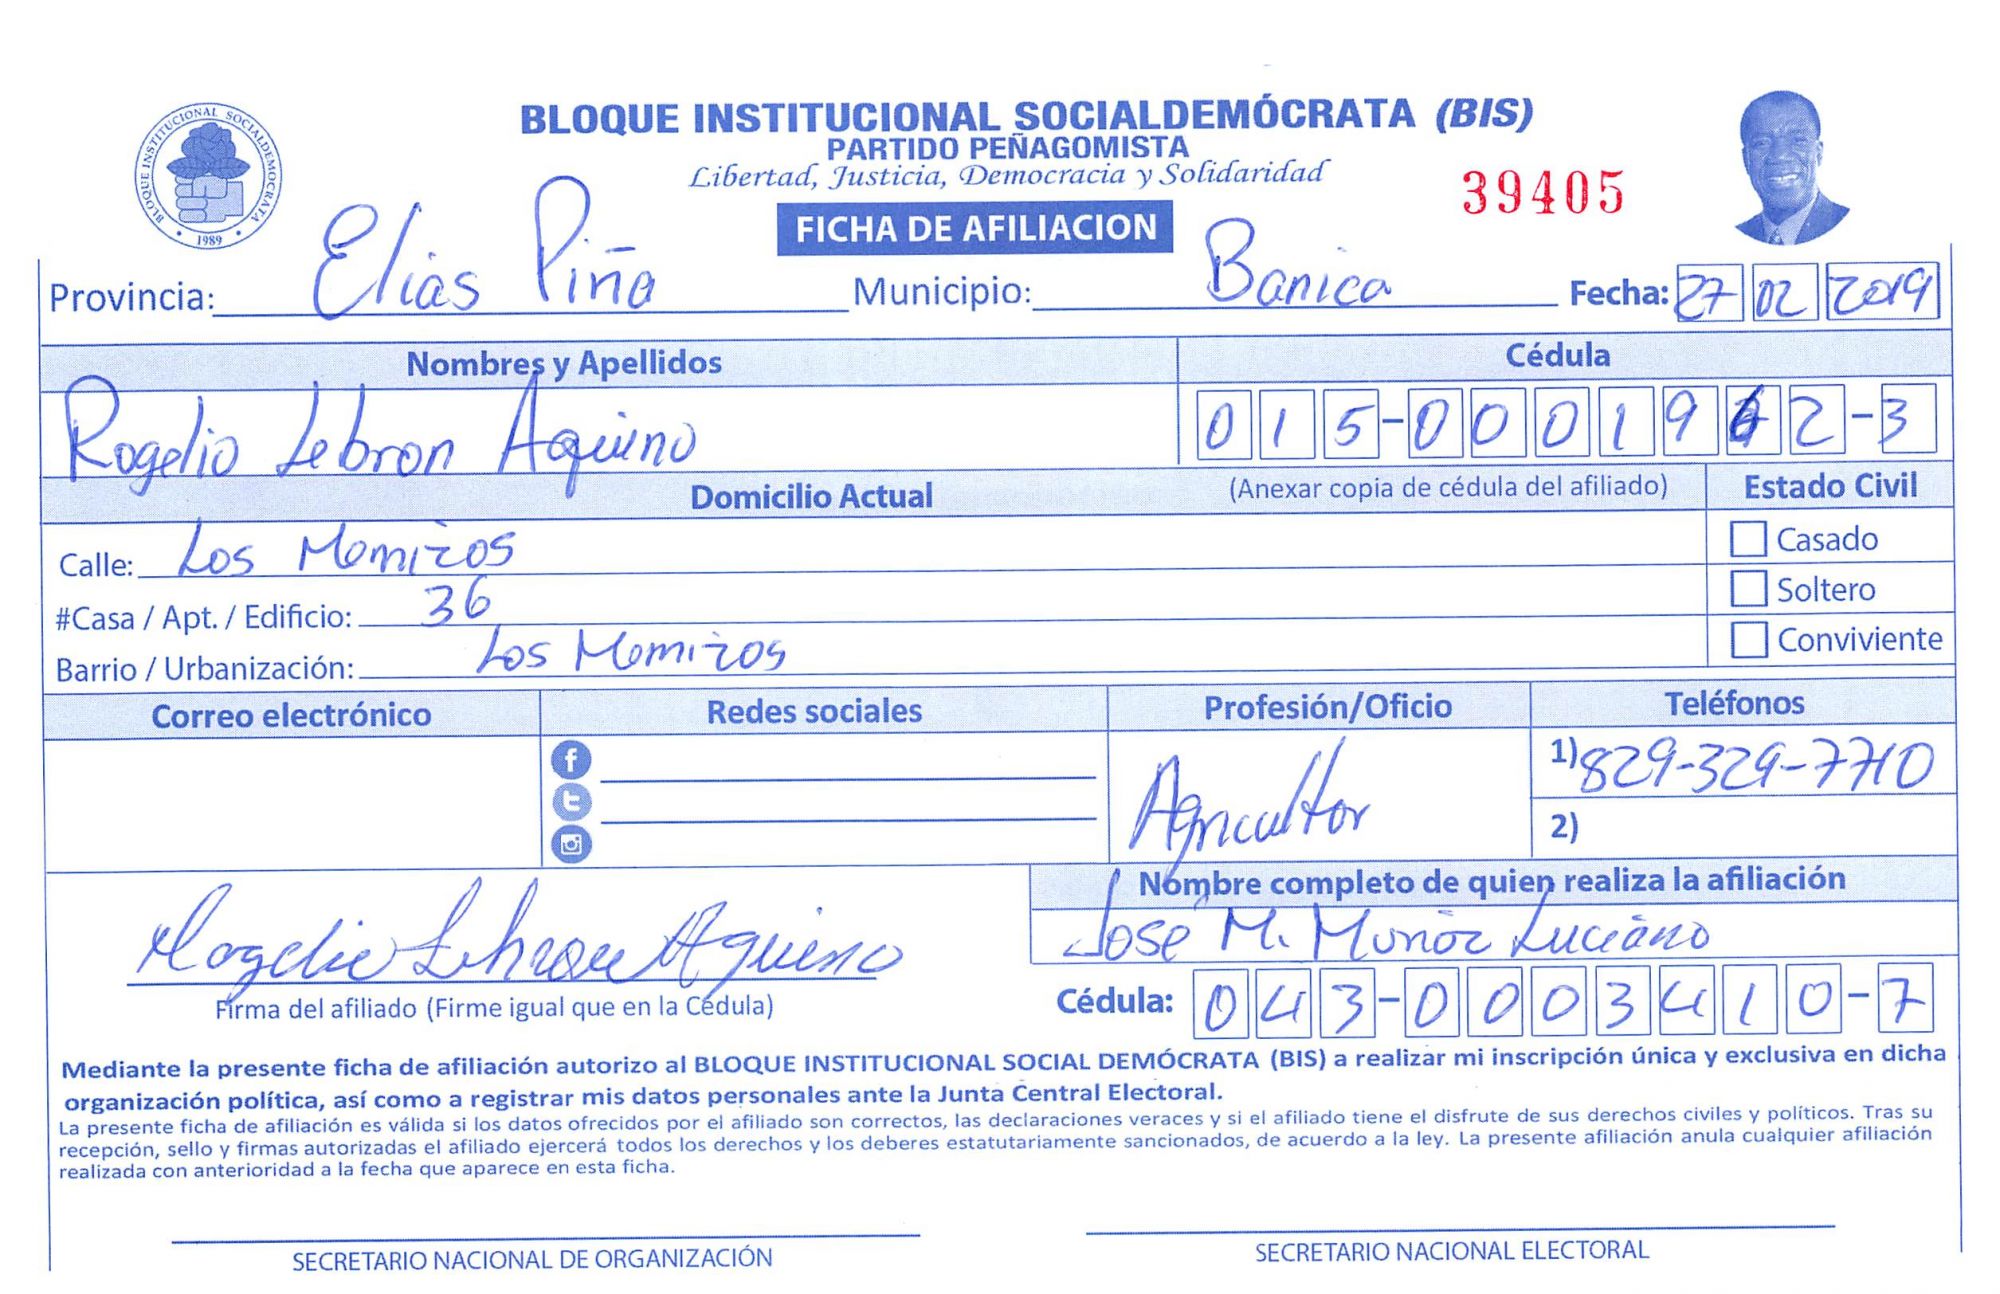 BLOQUE INSTITUCIONAL SOCIALDEMOCRATA
1989
BLOQUE INSTITUCIONAL SOCIALDEMÓCRATA (BIS)
PARTIDO PEÑAGOMISTA
Libertad, Justicia, Democracia y Solidaridad
39405
FICHA DE AFILIACION
Provincia: Elias Piña Municipio: Banica Fecha: 27 02 2019
Nombres y Apellidos Cédula
Rogelio Lebron Aquino 015-0001962-3
Domicilio Actual (Anexar copia de cédula del afiliado) Estado Civil
Calle: Los Memizos Casado
#Casa / Apt. / Edificio: 36 Soltero
Barrio / Urbanización: Los Memizos Conviviente
Correo electrónico Redes sociales Profesión/Oficio Teléfonos
Agricultor 1) 829-329-7710
2)
Nombre completo de quien realiza la afiliación
Rogelio Lebron Aquino Jose M. Muñoz Luciano
Firma del afiliado (Firme igual que en la Cédula) Cédula: 043-0003410-7
Mediante la presente ficha de afiliación autorizo al BLOQUE INSTITUCIONAL SOCIAL DEMÓCRATA (BIS) a realizar mi inscripción única y exclusiva en dicha
organización política, así como a registrar mis datos personales ante la Junta Central Electoral.
La presente ficha de afiliación es válida si los datos ofrecidos por el afiliado son correctos, las declaraciones veraces y si el afiliado tiene el disfrute de sus derechos civiles y políticos. Tras su
recepción, sello y firmas autorizadas el afiliado ejercerá todos los derechos y los deberes estatutariamente sancionados, de acuerdo a la ley. La presente afiliación anula cualquier afiliación
realizada con anterioridad a la fecha que aparece en esta ficha.
SECRETARIO NACIONAL DE ORGANIZACIÓN SECRETARIO NACIONAL ELECTORAL